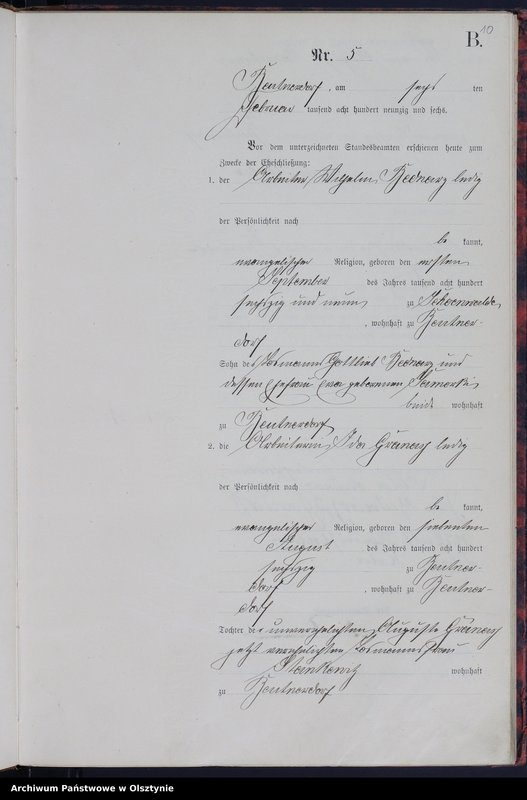 B. 10
Nr. 5
Reutnerdorf, am sechs ten
Februar tausend acht hundert neunzig und sechs.
Vor dem unterzeichneten Standesbeamten erschienen heute zum
Zwecke der Eheschließung:
1. der Arbeiter Wilhelm Bednarz ledig
der Persönlichkeit nach
be kannt,
evangelischer Religion, geboren den ersten
September des Jahres tausend acht hundert
sechzig und neun zu Schoenwalde
, wohnhaft zu
dorf
Sohn des Losmanns Gottlieb Bednarz und
dessen Ehefrau Eva geborenen
beide wohnhaft
zu
2. die Arbeiterin Ida ledig
der Persönlichkeit nach
be kannt,
evangelischer Religion, geboren den siebenten
August des Jahres tausend acht hundert
sechzig zu
dorf , wohnhaft zu
dorf
Tochter der unverehelichten Auguste
jetzt verehelichten Losmannsfrau
wohnhaft
zu
Archiwum Państwowe w Olsztynie